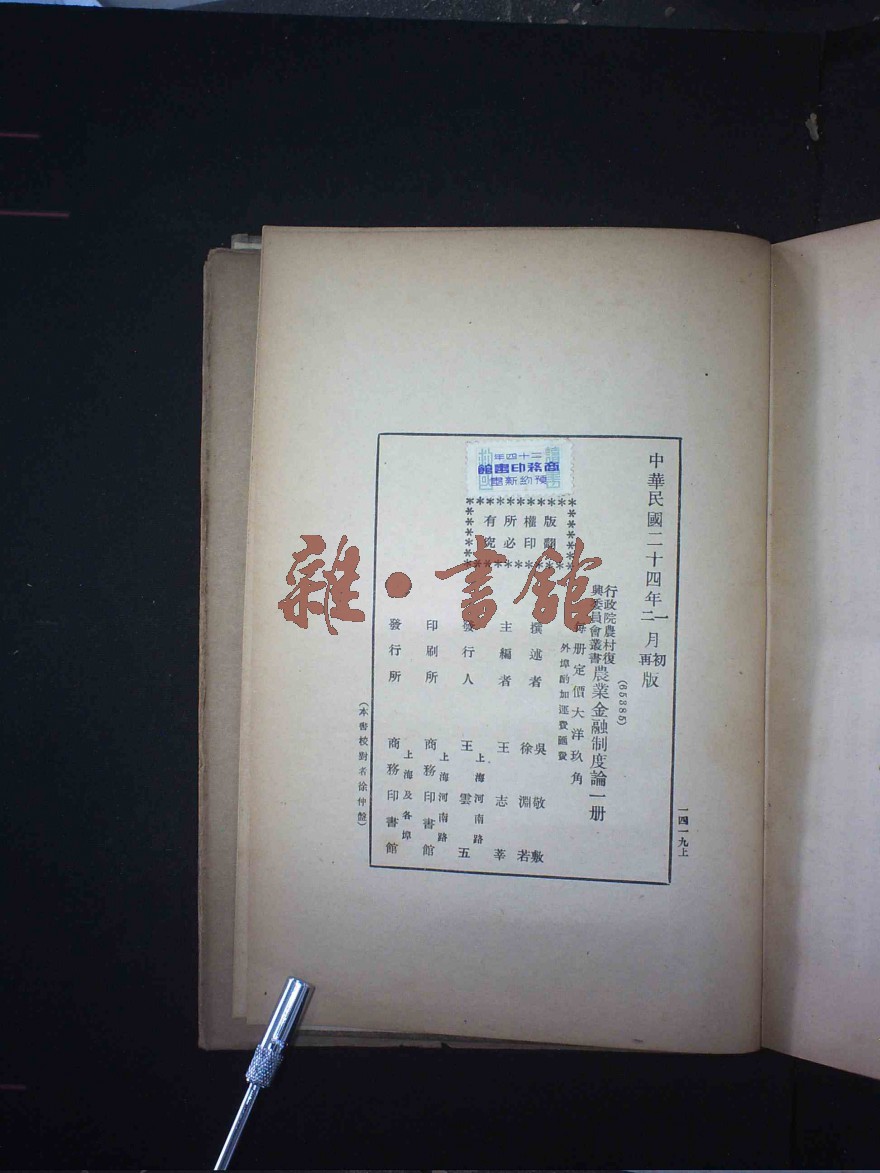 中華民國二十四年一月初版
二月再版
一四一九上
行政院農村復興委員會叢書
農業金融制度論一冊
(65385)
每冊定價大洋玖角
外埠酌加運費匯費
撰述者 吳敬敷
徐淵若
主編者 王志莘
發行人 王雲五
上海河南路
印刷所 商務印書館
上海河南路
發行所 商務印書館
上海及各埠
(本書校對者徐仲盤)
版權所有
翻印必究
二十四年
商務印書館
預約新書
雜·書館